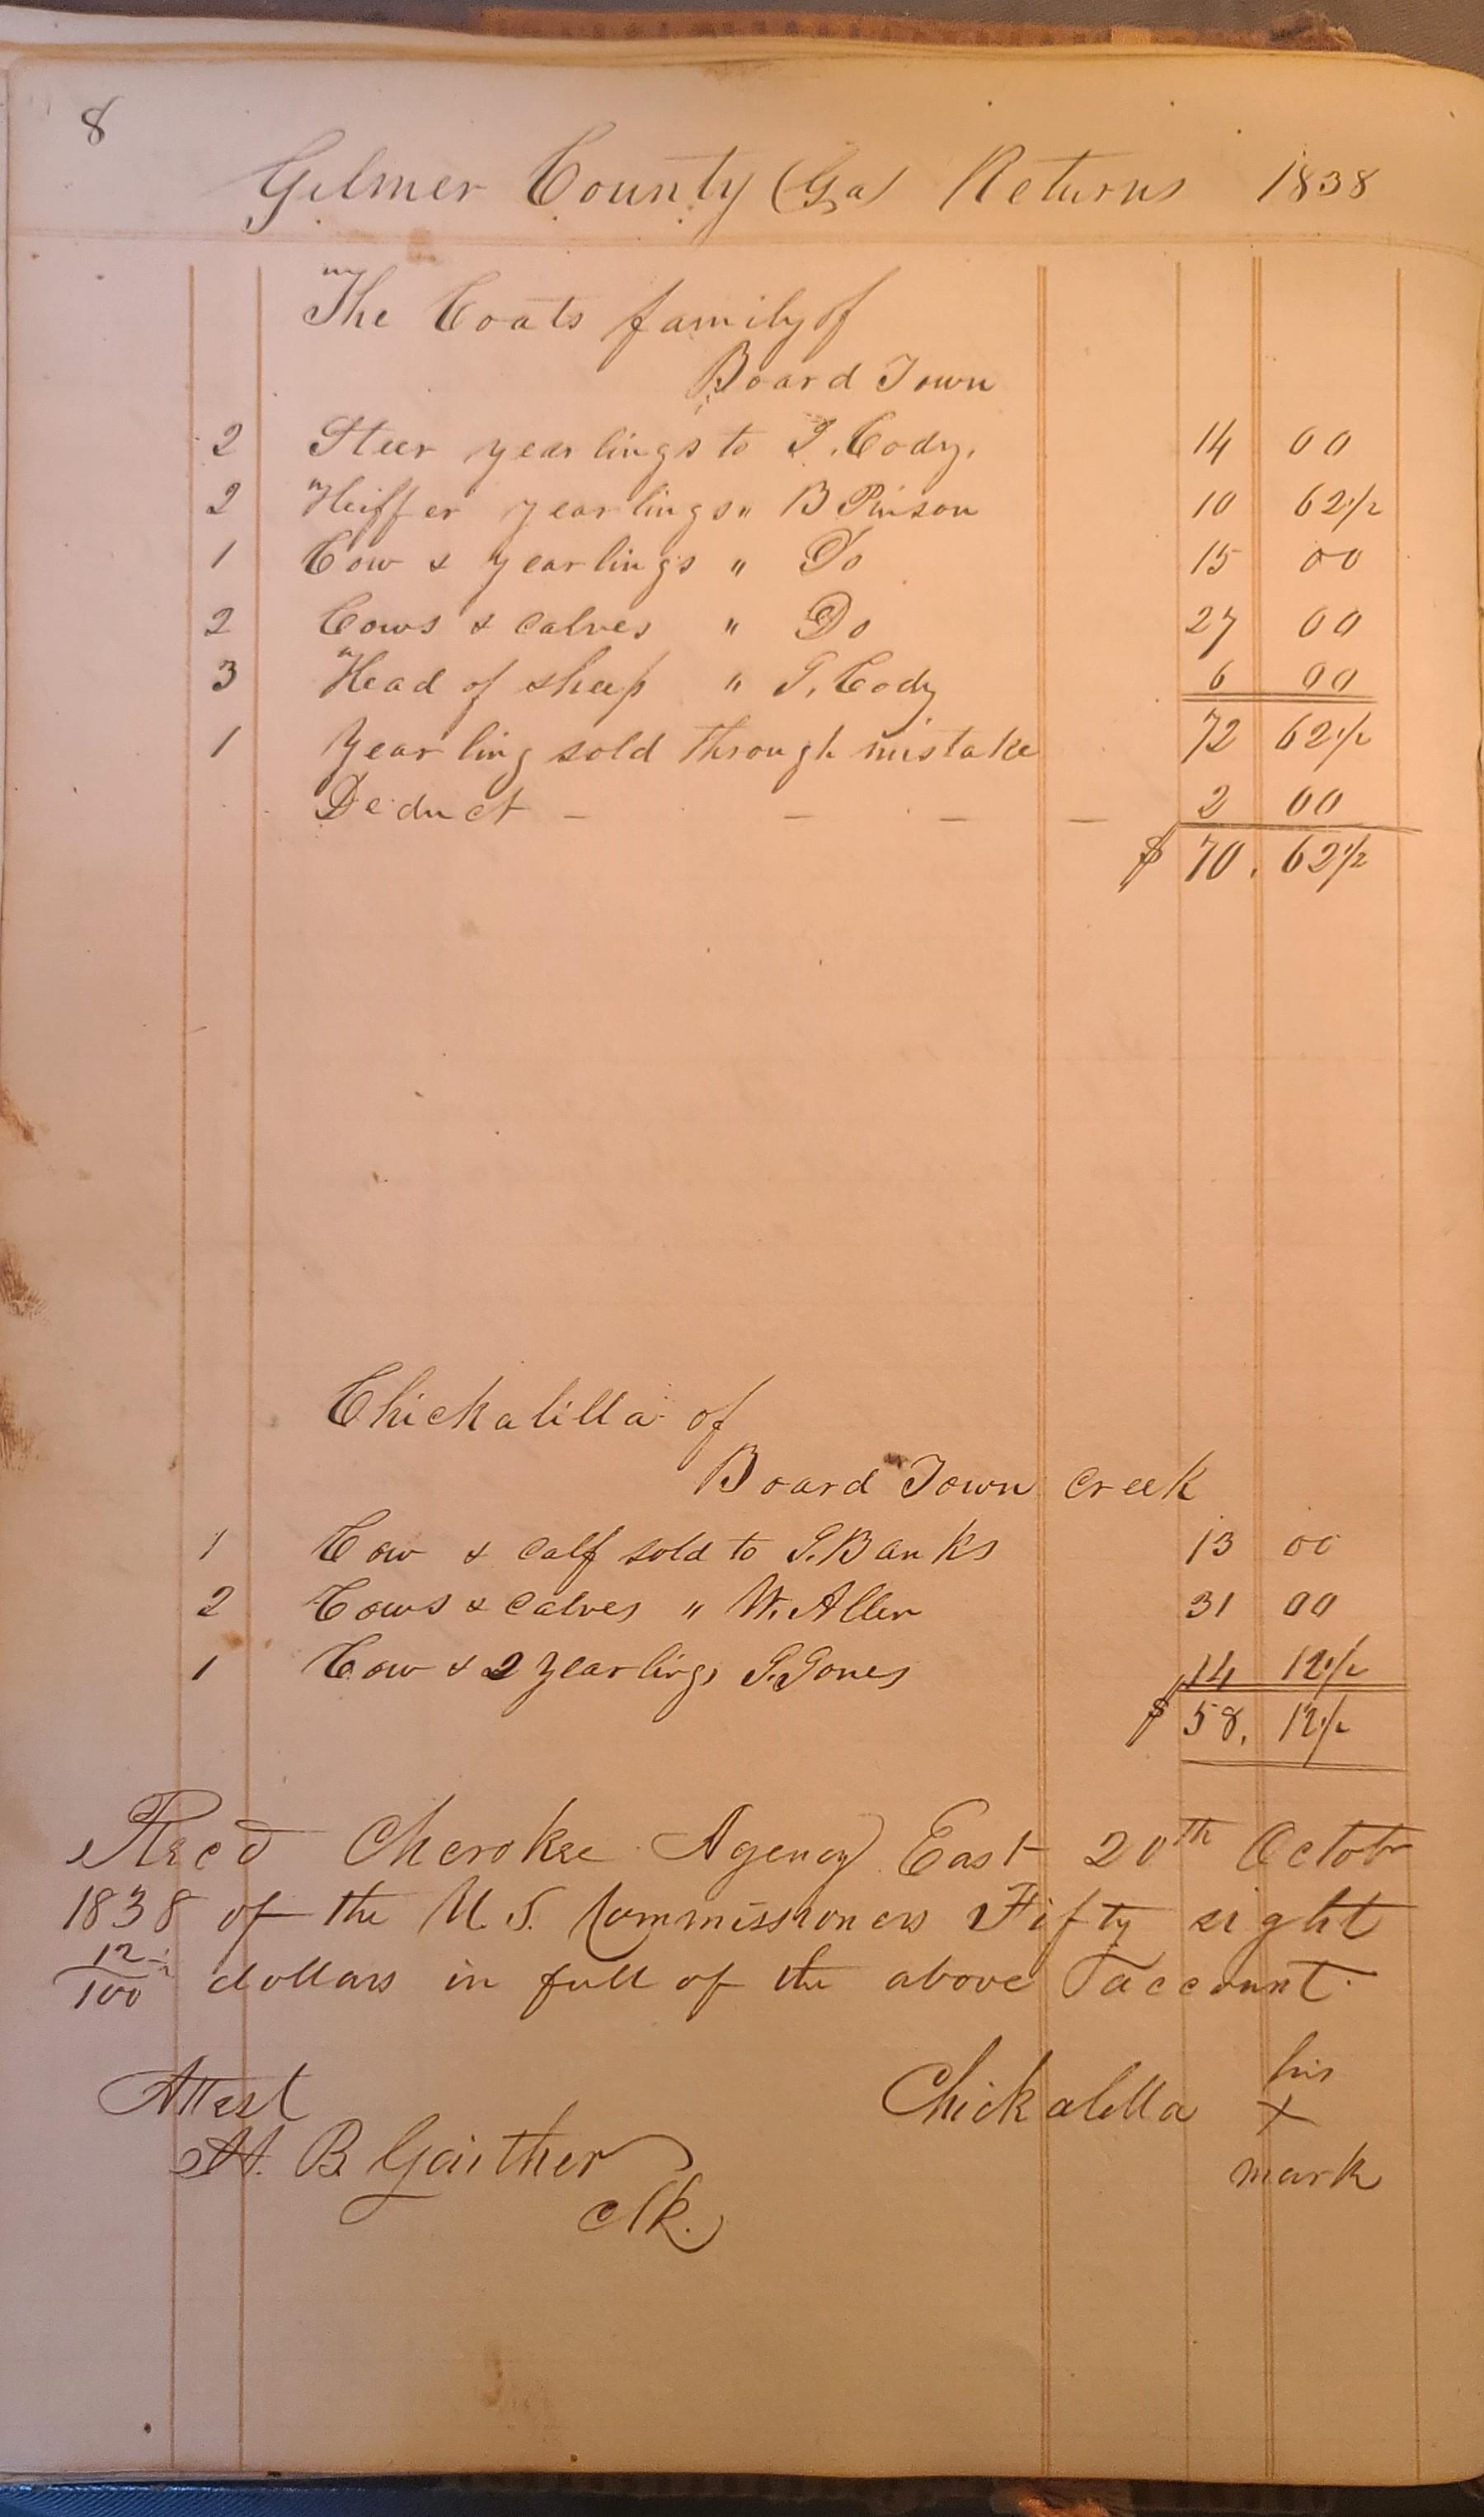 8
Gilmer County (Ga) Returns 1838
The Coats family of
Board Town
2 Steer yearlings to T. Cody. 14 00
2 Heiffer yearlings " B Pinson 10 62 1/2
1 Cow & yearlings " Do 15 00
2 Cows & calves " Do 27 00
3 Head of sheep " T. Cody 6 00
1 Yearling sold through mistake 72 62 1/2
Deduct - - - - 2 00
$ 70. 62 1/2
Chickalilla of
Board Town Creek
1 Cow & calf sold to J. Banks 13 00
2 Cows & Calves " W. Allen 31 00
1 Cow & 2 yearlings J. Jones 14 12 1/2
$ 58. 12 1/2
Recd Cherokee Agency East 20th Octobr
1838 of the U. S. Commissioners Fifty eight
12 1/2/100 dollars in full of the above account.
his
Attest Chickalilla x
A. B. Gaither mark
Clk.